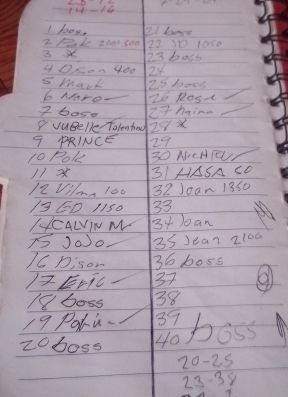 14-16
1 boss
2 Polk 2000 500
3 *
4 Dison 400
5 Mark
6 Nero
7 boss
8 Talentno
9 PRINCE
10 Polk
11 *
12 Vilma 100
13 ED 1150
14 CALVIN M
15 JoJo
16 Dison
17 Eric
18 boss
19
20 boss
21 boss
22 JD 1050
23 boss
24
25 boss
26 Rose
27
28 *
29
30
31 HASA 50
32 Jean 1350
33
34 Joan
35 Jean 2100
36 boss
37
38
39
40 boss
20-25
23-38